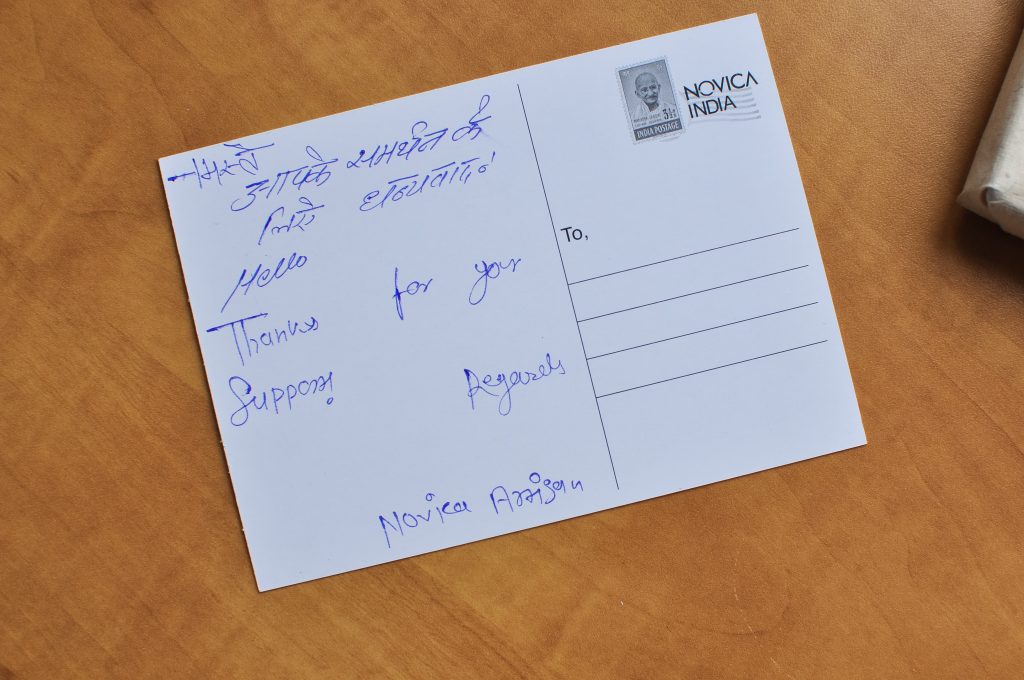 नमस्ते
आपके समर्थन के
लिए धन्यवाद
Hello
Thanks for your
Support
Regards
Novica Artisan
NOVICA
INDIA
3½ As
INDIA POSTAGE
To,